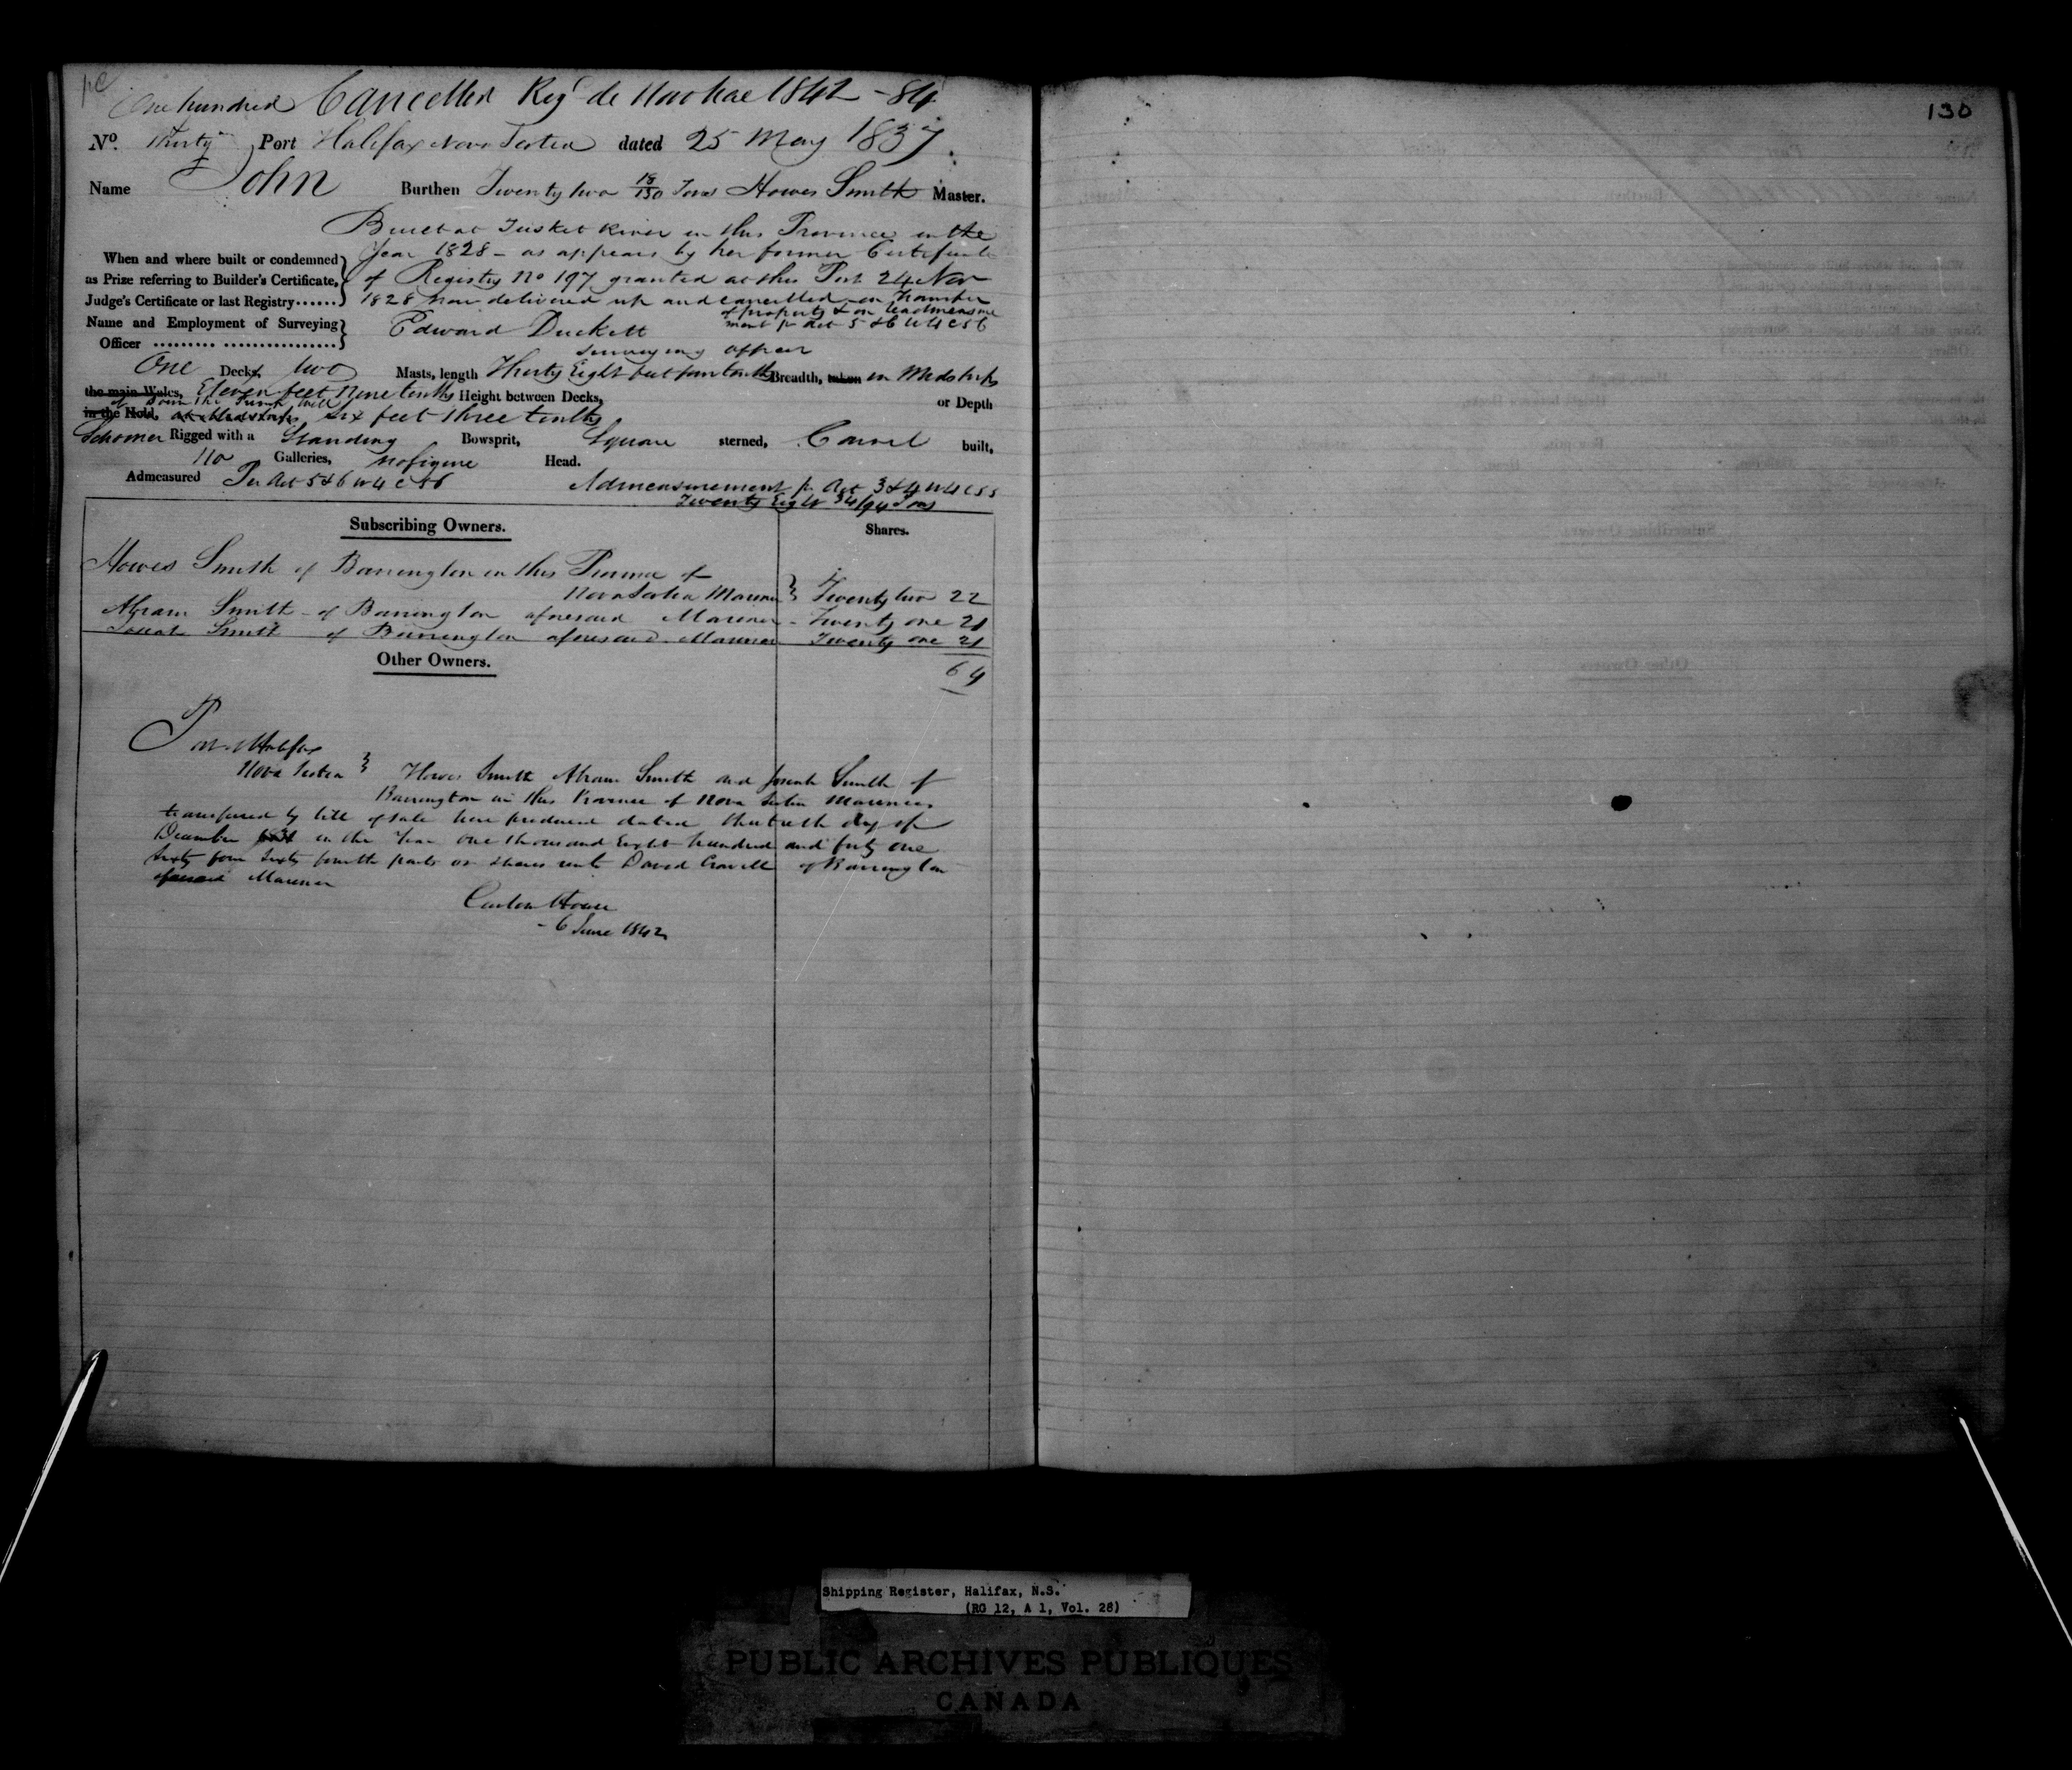 130
One hundred Cancelled Reg'd de 1842 - 84
No. Thirty Port Halifax Nova Scotia dated 25 May 1837
Name John Burthen Twenty two 18/130 Tons Howes Smith Master.
Built at Tusket River in this Province in the
Year 1828 - as appears by her former Certificate
When and where built or condemned
as Prize referring to Builder's Certificate, of Registry No 197 granted at this Port 24 Nov
Judge's Certificate or last Registry...... 1828 now delivered up and cancelled on transfer
of property & on readmeasure
ment pr Act 5 & 6 W 4 c 56
Name and Employment of Surveying
Officer Edward Duckett
Surveying officer
One Decks, two Masts, length Thirty Eight feet four tenths Breadth, taken in Midships
the main Wales, Eleven feet Nine tenths Height between Decks, or Depth
in the Hold, at Midships six feet three tenths
Schooner Rigged with a Standing Bowsprit, Square sterned, Carvel built,
no Galleries, no figure Head.
Admeasured Per Act 5 & 6 W 4 c 56 Admeasurement pr Act 3 & 4 W 4 c 55
Twenty Eight 34/94 Tons
Subscribing Owners. Shares.
Howes Smith of Barrington in this Province of
Nova Scotia Mariner Twenty two 22
Abram Smith - of Barrington aforesaid Mariner - Twenty one 21
Smith of Barrington aforesaid Mariner Twenty one 21
Other Owners. 64
Port Halifax
Nova Scotia Howes Smith Abram Smith and Smith of
Barrington in this Province of Nova Scotia Mariners
transferred by bill of sale here produced dated thirtieth day of
December in the Year One thousand Eight hundred and forty one
Sixty four sixty fourth parts or shares unto David Crowell of Barrington
aforesaid Mariner
Custom House
- 6 June 1842
Shipping Register, Halifax, N.S.
(RG 12, A 1, Vol. 28)
PUBLIC ARCHIVES PUBLIQUES
CANADA